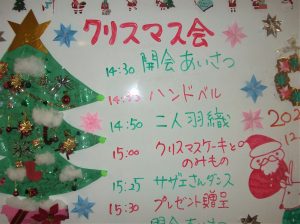 クリスマス会
14:30 開会あいさつ
ハンドベル
14:50 二人羽織
15:00 クリスマスケーキと
のみもの
15:15 サザエさんダンス
15:30 プレゼント贈呈
閉会あいさつ